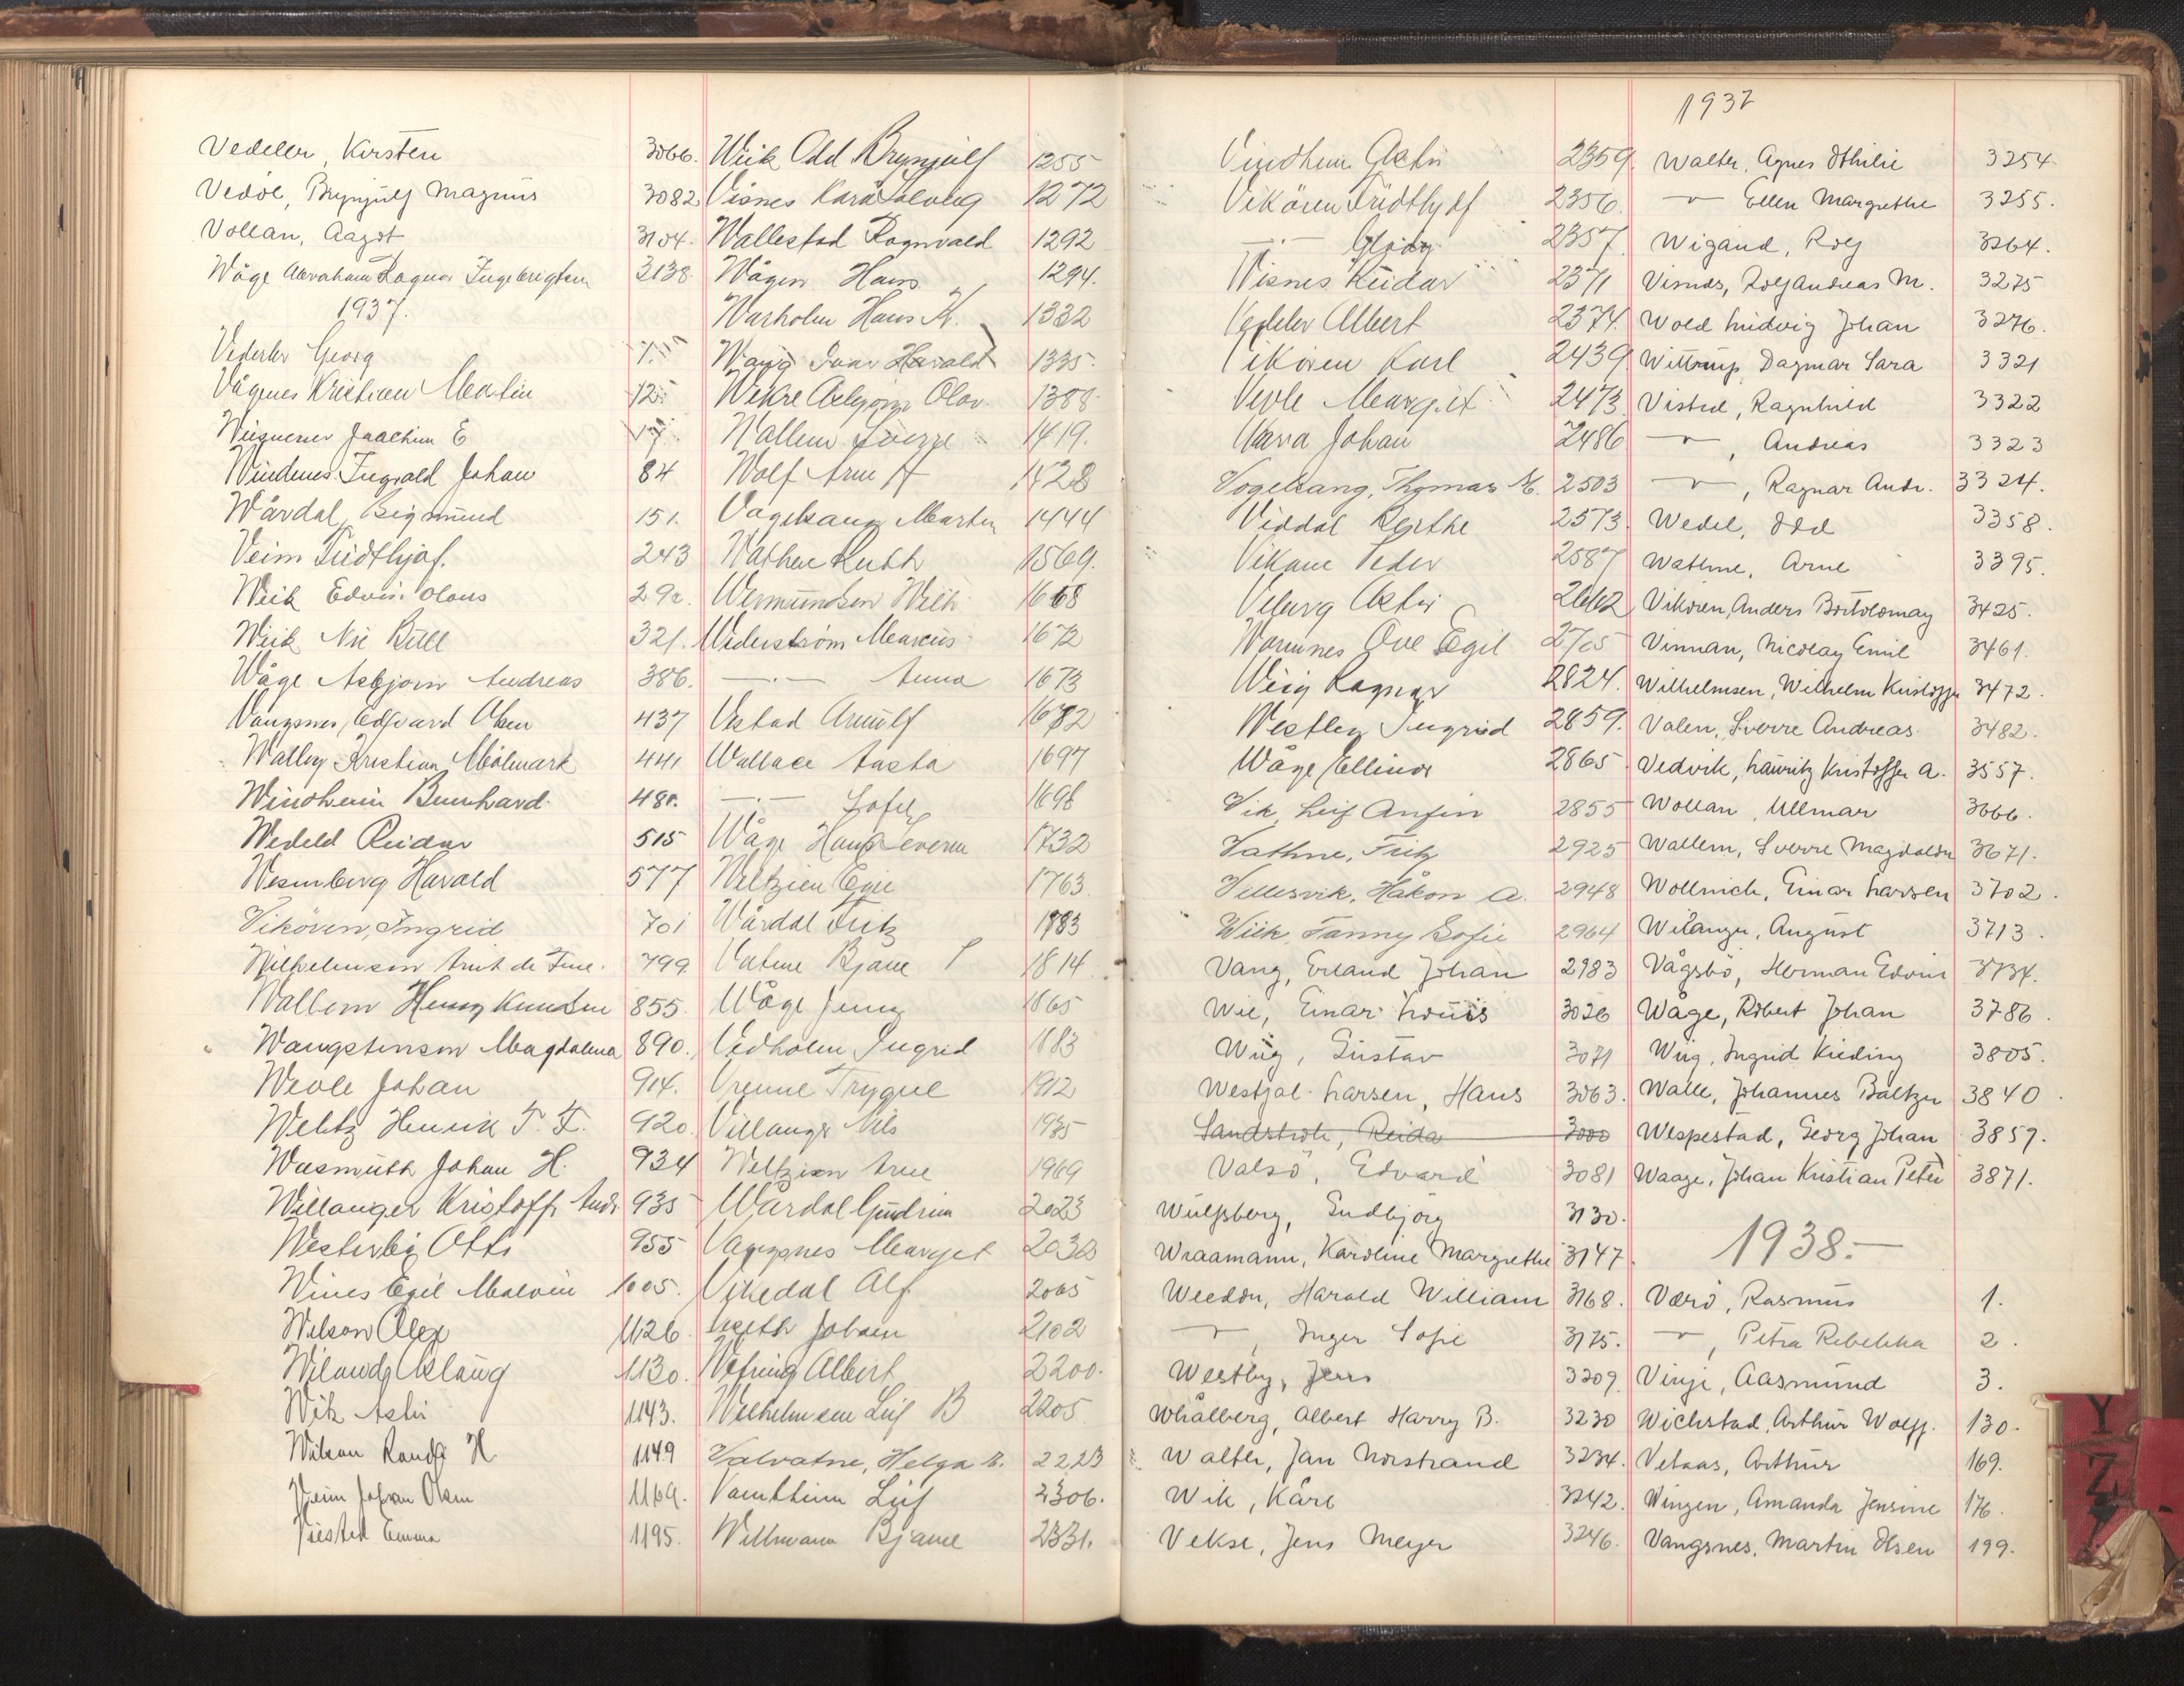 Vedeler, Kirsten 3066.
Vedøe, Brynjulf Magnus 3082
Vollan, Aagot 3104.
Wåge Abraham Ragnar Ingebrigtsen 3138
1937.
Vederler Georg 7.
Vågenes Kristian Martin 12
Joachim E
Vindenes Ingvald Johan 84
Wårdal, Sigmund 151.
Veim Fridthjof. 243
Wiik Edvin Olaus 29
Wiik Nic Bull 321.
Wåge Asbjørn Andreas 386.
Vangsnes, Edvard Olsen 437
Kristian Mølmark 441
Windheim Bernhard. 480.
Wedeld Reidar 515
Wesenberg Harald 577
Vikören, Ingrid 701
Wilhelmsen Arnt de Fine. 799
Wallem Henry Knudsen 855.
Wangstensen Magdalena 890.
Wevle Johan 914.
Weltz Henrik F. F. 920.
Wasmuth Johan H. 934
Willanger Kristoffr Andr 935
Westerby Otto 955
Wines Egil Malvin 1005.
Wilson Olga 1126.
Wilands Aslaug 1130.
Wik Aslri 1143.
Wilson Randi H 1149
Veim Johan Olsen 1169.
Viested Emma 1195.
Wiik Odd Brynjulf 1255
Visnes Kåra Solveig 1272
Wallestad Ragnvald 1292
Wågen Hans 1294.
Warholm Hans K. 1332
Wang Ivar Harald 1335.
Wekre Asbjørg Olav. 1388
Wallem Sverre 1419.
Wolf Arne A 1428
Vogelsang Martin 1444
Wathne Ruth 1569.
Wermundsen Wilh 1668
Widerstrøm Marcus 1672
—.— Anna 1673
Vestad Arnulf 1682
Wallace Aasta 1697
—.— Sofie 1698
Wåge Hans Severin 1732
Weltzien Egil 1763.
Wårdal Fritz 1783
Vatne Bjarne S 1814
Wåge Jenny 1865
Vedholm Ingrid 1883
Vrenne Trygve 1912
Villanger Nils 1935
Weltzien Arne 1969
Wårdal Gudrun 2023
Vangsnes Margit 2030
Vikedal Alf 2065
Johan 2102
Wefring Albert 2200.
Wilhelmsen Leif B 2205
Valvatne, Helga B. 2223
Vamtheim Leif 2306.
Willmann Bjarne 2331.
Vindheim Astri 2359.
Vikören Fridthjof 2356.
—.— Gljòdy 2357
Visnes Reidar 2371
Vedeler Albert 2374.
Vikören Karl 2439
Vevle Margit 2473
Vara Johan 2486
Vogelsang, Thomas M. 2503
Viddal Berthe 2573.
Vikane Peder 2587
Viburg Astri 2662
Varnnes Ove Egil 2705
Wiig Ragnar 2824.
Westley Ingrid 2859.
Wåge Ellinor 2865
Vik, Leif Anfin 2855
Vathne, Fritz 2925
Villesvik, Håkon A. 2948
Wiik, Fanny Sofie 2964
Vang, Erland Johan 2983
Wie, Einar Louis 3026
Wiig, Gustav 3071
Westfal-Larsen, Hans 3063.
Sandstrole, Reida 3000
Valsö, Edvard 3081
Wulfsberg, Gudbjörg 3130.
Wraamann, Karoline Margrethe 3147.
Weedon, Harald William 3168.
—"—, Inger Sofie 3175.
Westby, Jens 3209.
Whålberg, Albert Harry B. 3230
Walter, Jan Norstrand 3234.
Wik, Kåre 3242.
Vekse, Jens Meyer 3246.
1937
Walter, Agnes Othilie 3254.
—"— Ellen Margrethe 3255.
Wigand, Rolf 3264.
Visnes, Rolf Andreas M. 3275
Wold Ludvig Johan 3276.
Wittrup, Dagmar Sara 3321
Visted, Ragnhild 3322
—"—, Andreas 3323
—"—, Ragnar Andr. 3324.
Wedel, Odd 3358.
Wathne, Arne 3395.
Vikören, Anders Bortolomay 3425.
Vinnan, Nicolay Emil 3461.
Wilhelmsen, Wilhelm Kristoffer 3472.
Valen, Sverre Andreas 3482.
Vedvik, Lauritz Kristoffer A. 3557.
Wollan, Ullmar 3666.
Wallem, Sverre Magdalon 3671.
Wollnick, Einar Larsen 3702.
Wilanger, August 3713.
Vågsbö, Herman Edvin 3734.
Wåge, Robert Johan 3786.
Wiig, Ingrid Kieding 3805.
Walle, Johannes Baltzer 3840.
Wespestad, Georg Johan 3859.
Waage, Johan Kristian Peter 3871.
1938.-
Værö, Rasmus 1.
—"—, Petra Rebekka 2.
Vinje, Aasmund 3.
Wichstad, Arthur Wolff. 130.
Vetaas, Arthur 169.
Wingen, Amanda Jensine 176.
Vangsnes, Martin Olsen 199.
Y
Z